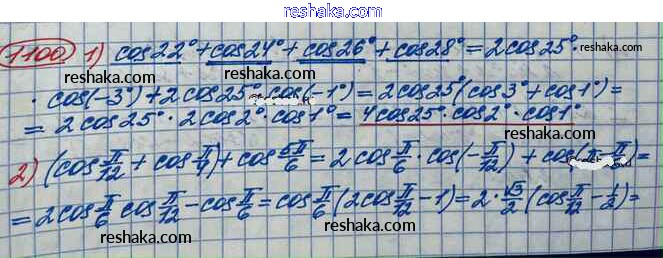 reshaka.com
1100 1) cos22° + cos24° + cos26° + cos28° = 2cos25° ·
reshaka.com reshaka.com
· cos(-3°) + 2cos25° · cos(-1°) = 2cos25°(cos3° + cos1°) =
= 2cos25° · 2cos2° · cos1° = 4cos25° · cos2° · cos1°
reshaka.com
2) (cos π/12 + cos π/4) + cos 5π/6 = 2cos π/6 · cos(-π/12) + cos(π - π/6) =
reshaka.com
= 2cos π/6 cos π/12 - cos π/6 = cos π/6 (2cos π/12 - 1) = 2 · √3/2 (cos π/12 - 1/2) =
reshaka.com reshaka.com
reshaka.com